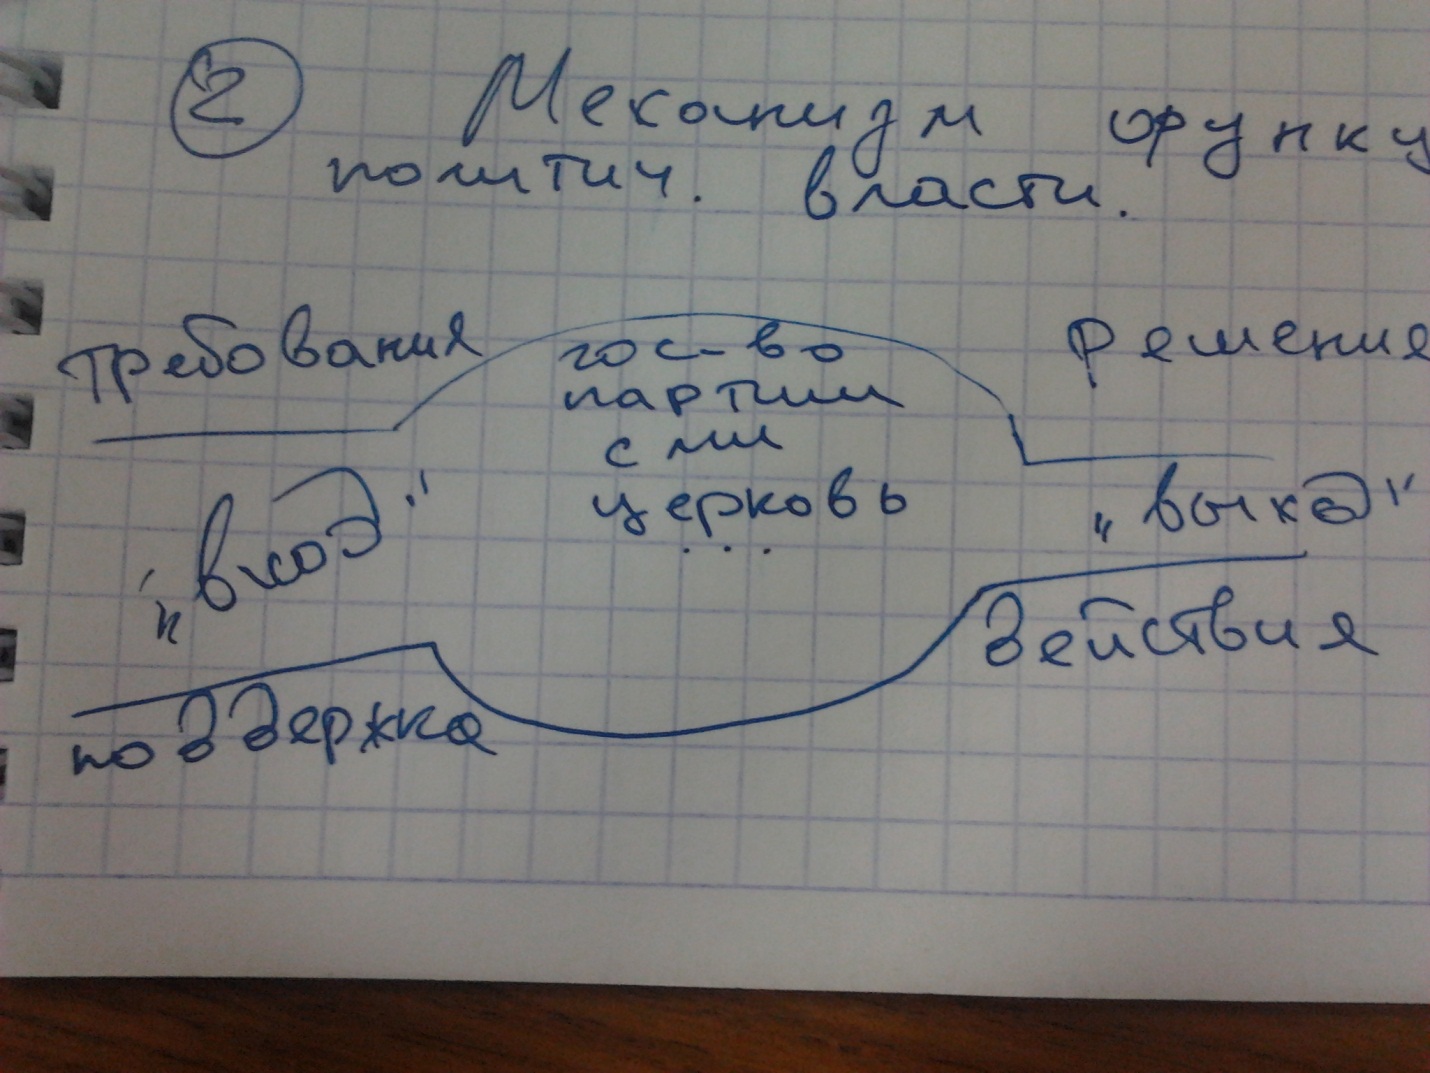 2 Механизм функц
политич. власти.
требования
гос-во
решение
партии
сми
"вход"
церковь
"выход"
...
действия
поддержка